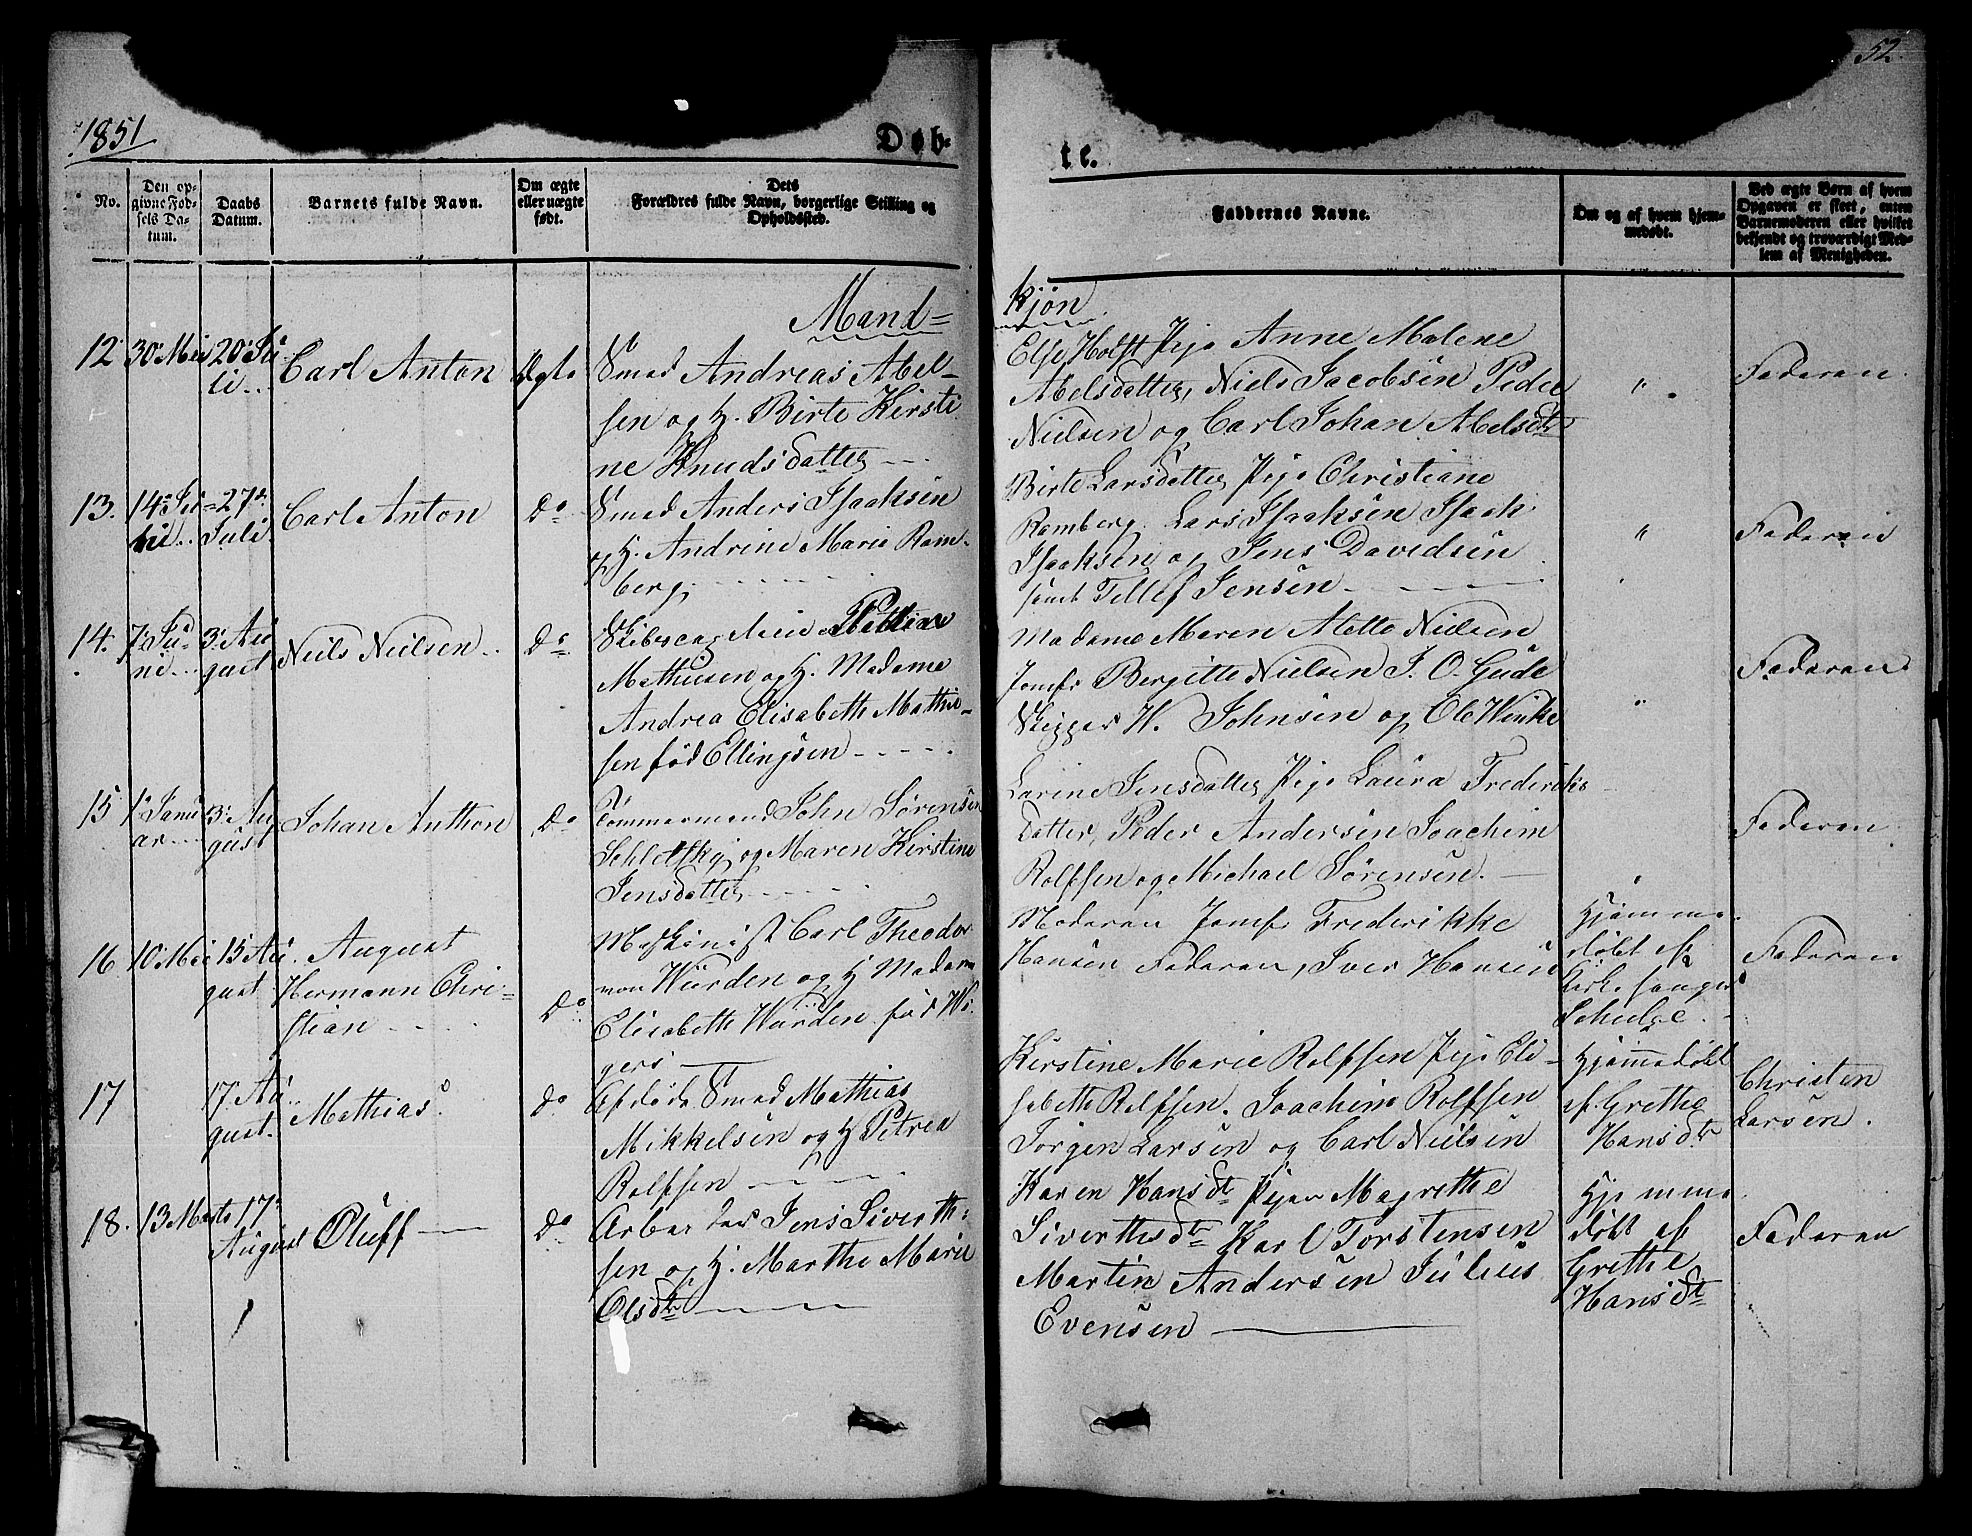 52
1851
Døb-
te.
No.
Den op-
givne Fød-
sels Da-
tum.
Daabs
Datum.
Barnets fulde Navn.
Om ægte
eller uægte
født.
Dets
Forældres fulde Navn, borgerlige Stilling og
Opholdssted.
Faddernes Navne.
Om og af hvem hjem-
medøbt.
Ved ægte Børn af hvem
Opgaven er skeet, enten
Barnemoderen eller hvilket
bekjendt og troværdigt Med-
lem af Menigheden.
Mand=
kjøn
12 30 Mai 20 Ju
li
Carl Anton
Ægte
Smed Andreas Abel-
sen og H. Birte Kirsti
ne Knudsdatter
Else Holst Pige Anne Malene
Abelsdatter, Niels Jacobsen Peder
Nielsen og Carl Johan Abelsdt
"
Faderen
13. 14 Ju 27de
Juli
Carl Anton
Do
Smed Anders Isaaksen
og H. Andrine Marie Ram-
berg
Birte Larsdatter Pige Christiane
Ramberg. Lars Isaaksen Isach
Isaaksen og Jens Davidsen
samt Tellef Jensen
"
Faderen
14. 7 Ju-
ni
3 Au
gust
Niels Nielsen
Do
Skibscaptein
Mathisen og H. Madame
Andrea Elisabeth Mathie-
sen fød Ellingsen
Madame Maren Alette Nielsen
Jomfr Bergitte Nielsen J. O. Gude
Skipper H. Johnsen og Ole Winke
"
Faderen
15 1 Janu
ar
3 Au
gust
Johan Anthon
Do
Tømmermand John Sørensen
og Maren Kirstine
Jensdatter
Larine Jensdatter Pige Laura Frederiks
datter, Peder Andersen Joachim
Rolfsen og Michael Sørensen.
Faderen
16 10 Mai 15 Au
gust
August
Hermann Chri-
stian
Do
Maskinist Carl Theodor
von Würden og H Madam
Elisabeth Würden fød Wi
gers
Moderen Jomfr Frederikke
Hansen Faderen, Iver Hansen
Hjemme
døbt af
Kirkesanger
Schulze
Faderen
17
17 Au
gust.
Mathias
do
Afdøde Smed Mathias
Mikkelsen og H Petrea
Rolfsen
Kirstine Marie Rolfsen Pige Eli-
sabeth Rolfsen. Joachim Rolfsen
Jørgen Larsen og Carl Nielsen
Hjemmedøbt
af Grethe
Hansdtr
Christen
Larsen.
18. 13 Marts 17
August
Oluff
Do
Arbeider Jens Siverth-
sen og H. Marthe Marie
Olsdtr
Karen Hansdtr Piger Magrethe
Siverthsdtr Karl Torstensen
Martin Andersen Julius
Evensen
Hjemme
døbt af
Grethe
Hansdtr
Faderen